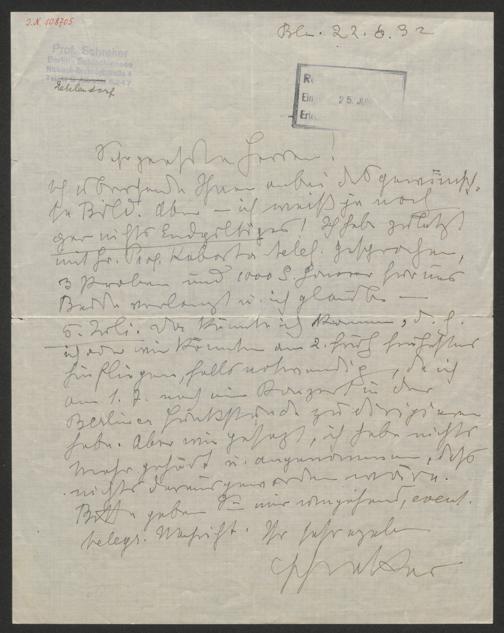 I.N 108705
Bln. 22.6.32
Prof. Schreker
Berlin
Zehlendorf
25. JUN
Sehr geehrte Herren!
Ich übersende Ihnen anbei das gewünsch-
te Bild. Aber – ich weiß ja noch
gar nichts Endgültiges! Ich habe zuletzt
mit Hr. Prof. Kabasta telef. gesprochen,
3 Proben und 1000 S. Honorar für uns
Beide verlangt u. ich glaube –
5. Juli. Da könnte ich kommen, d. h.
ich oder wir könnten am 2. früh
hinfliegen, falls notwendig, da ich
am 1. 7. noch ein Konzert in der
Berliner Funkstunde zu dirigieren
habe. Aber wie gesagt, ich habe nichts
mehr gehört u. angenommen, daß
nichts daraus geworden wäre.
Bitte geben Sie mir umgehend, event.
telegr. Nachricht. Ihr sehr ergeb.
Schreker